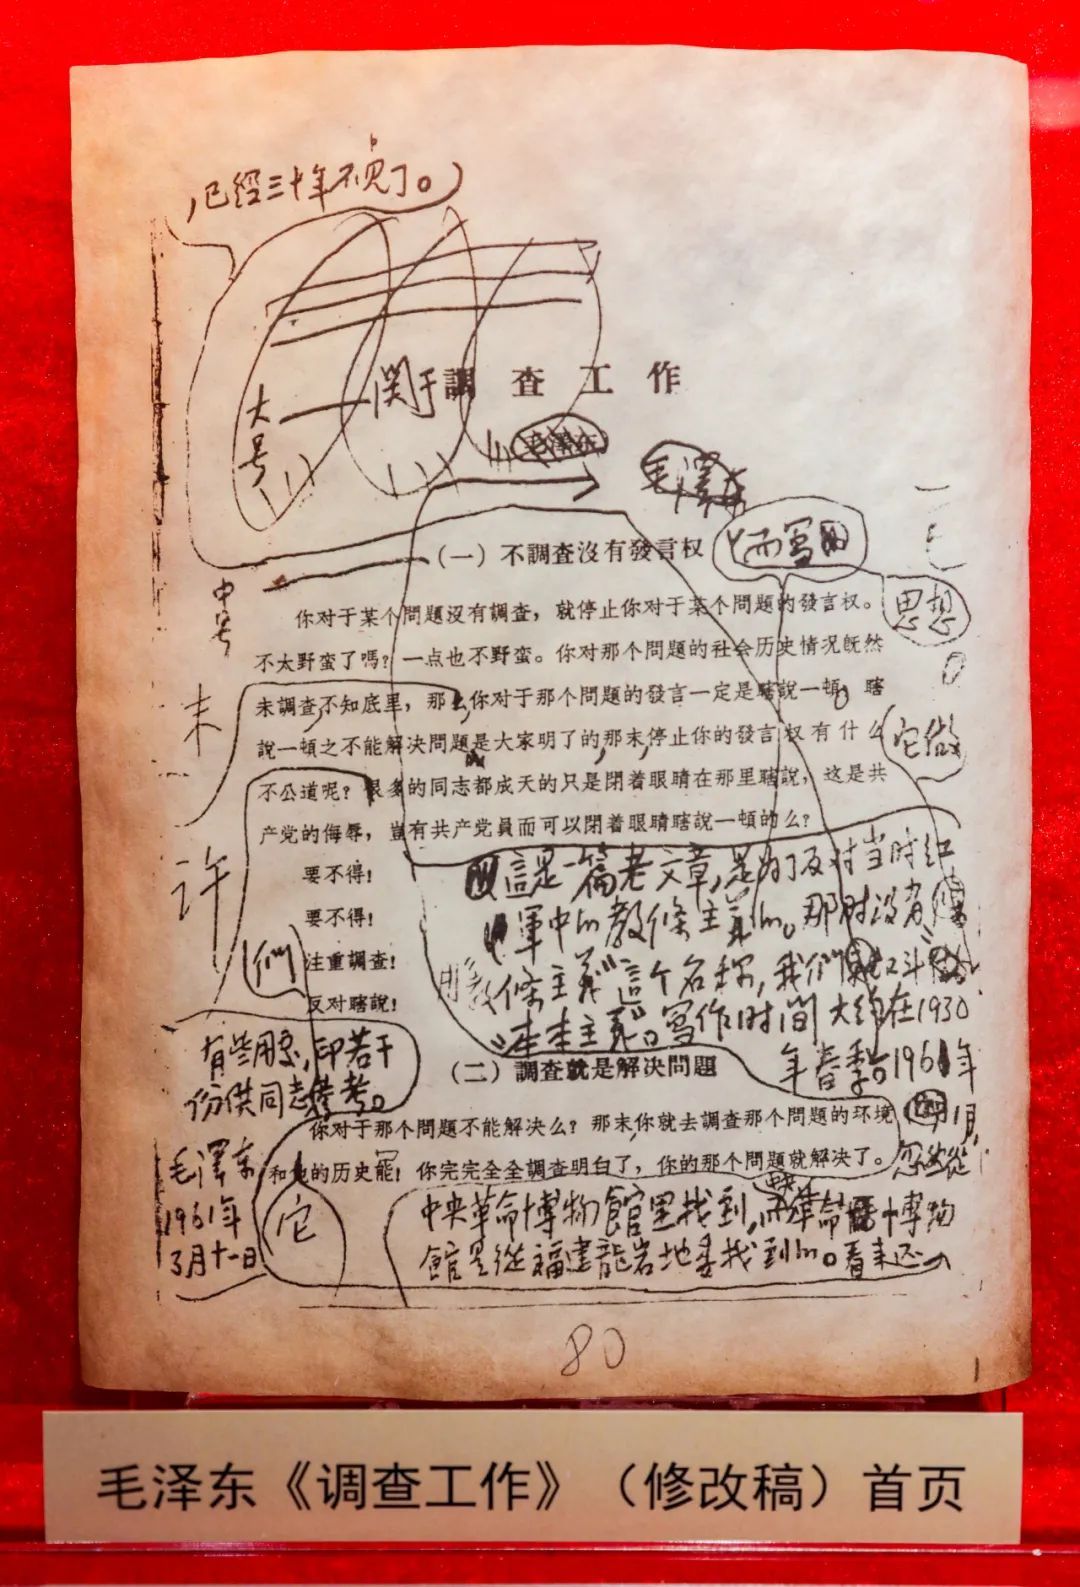 ，已經三十年不見了。
大号
关于調查工作
毛澤东
（一）不調查沒有發言权
而寫的
中号
思想
你对于某个問題沒有調查，就停止你对于某个問題的發言权。
不太野蛮了嗎？一点也不野蛮。你对那个問題的社会历史情况既然
未調查不知底里，那么，你对于那个問題的發言一定是瞎說一頓。瞎
未
說一頓之不能解决問題是大家明了的，那末，停止你的發言权有什么
它做
不公道呢？很多的同志都成天的只是閉着眼睛在那里瞎說，这是共
产党的侮辱，豈有共产党員而可以閉着眼睛瞎說一頓的么？
许
要不得！
要不得！
們
注重調查！
反对瞎說！
這是一篇老文章，是为了反对当时红
軍中的教條主義的。那时没有
教條主義這个名称，我们叫它
“本本主義”。寫作时间大约在1930
年春季。1961年
有些用处，印若干
份供同志参考。
毛澤东
1961年
3月十一日
（二）調查就是解决問題
你对于那个問題不能解决么？那末，你就去調查那个問題的环境
1月，
和他的历史罷！你完完全全調查明白了，你的那个問題就解决了。
忽然從
它
中央革命博物館里找到，中央革命博物
館是從福建龍岩地委找到的。看来还
80
毛泽东《调查工作》（修改稿）首页